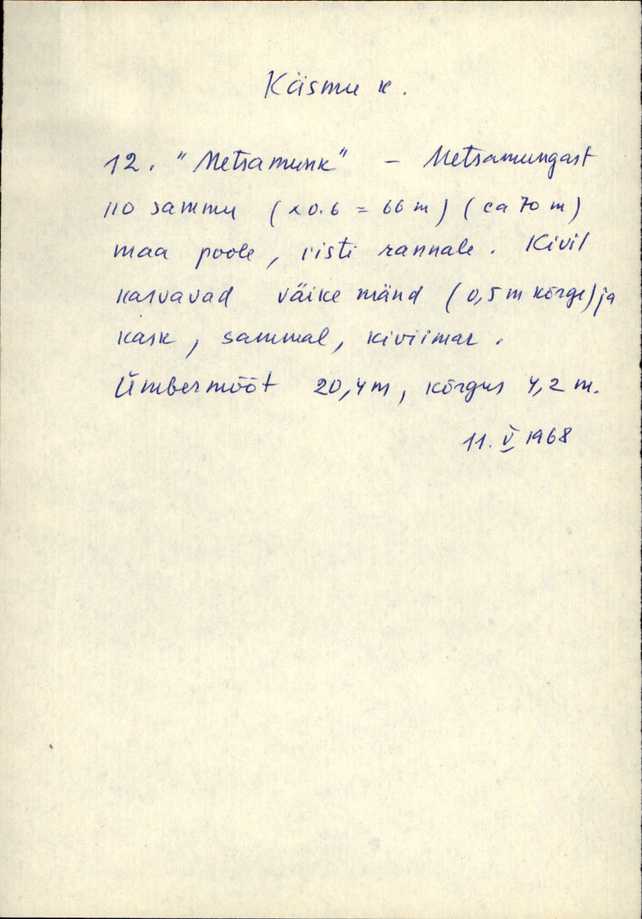 Käsmu k.
12. "Metsamunk" - Metsamungast
110 sammu (x0.6 = 66 m) (ca 70 m)
maa poole, risti rannale. Kivil
kasvavad väike mänd (0,5 m kõrge) ja
kask, sammal, kiviimar.
Ümbermõõt 20,4 m, kõrgus 4,2 m.
11. V 1968